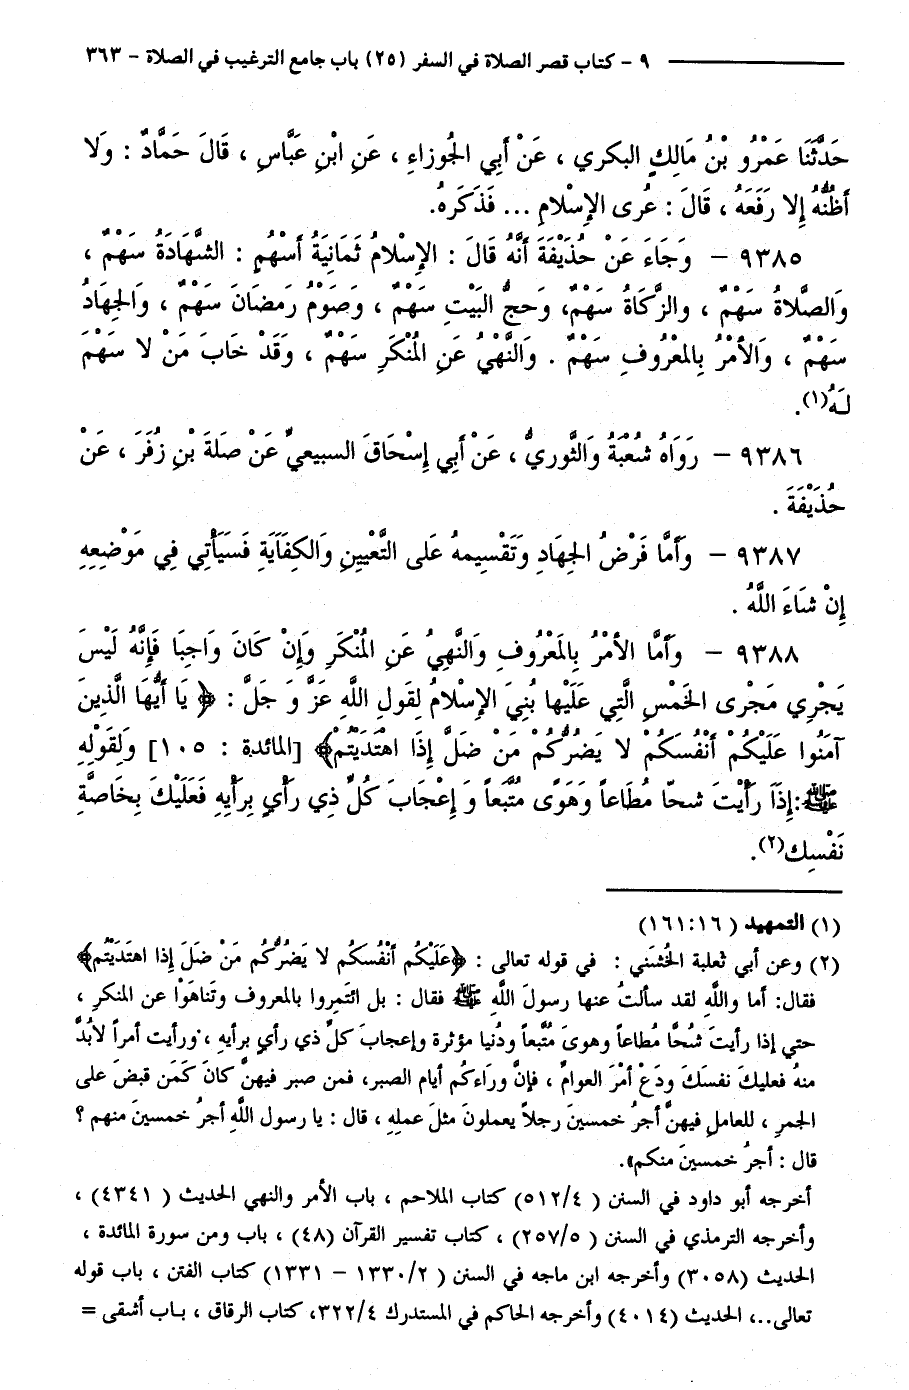 ٩ - كتاب قصر الصلاة في السفر (٢٥) باب جامع الترغيب في الصلاة - ٣٦٣
حَدَّثَنَا عَمْرُو بْنُ مَالِكٍ البكري ، عَنْ أَبِي الجُوزاءِ ، عَنِ ابْنِ عَبَّاسٍ ، قَالَ حَمَّادٌ : وَلا
أَظُنُّهُ إِلا رَفَعَهُ ، قَالَ : عُرى الإِسْلامِ ... فَذَكَرهُ.
٩٣٨٥ - وَجَاءَ عَنْ حُذَيْفَةَ أَنَّهُ قَالَ : الإِسْلامُ ثَمَانِيَةُ أَسْهُمٍ : الشَّهَادَةُ سَهْمٌ ،
وَالصَّلاةُ سَهْمٌ ، والزَّكَاةُ سَهْمٌ، وَحجُّ البَيْتِ سَهْمٌ ، وَصَوْمُ رَمضَانَ سَهْمٌ ، وَالجِهَادُ
سَهْمٌ ، وَالأَمْرُ بِالمعْرُوفِ سَهْمٌ . وَالنَّهْيُ عَنِ المُنْكَرِ سَهْمٌ ، وَقَدْ خَابَ مَنْ لا سَهْمَ
لَهُ(١).
٩٣٨٦ - رَوَاهُ شُعْبَةُ وَالثَّوريُّ ، عَنْ أَبِي إِسْحَاقَ السبيعيِّ عَنْ صلَةَ بْنِ زُفَرَ ، عَنْ
حُذَيْفَةَ .
٩٣٨٧ - وَأَمَّا فَرْضُ الجِهَادِ وَتَقْسِيمهُ عَلى التَّعْيِينِ وَالكِفَايَةِ فَسَيَأْتِي فِي مَوْضِعِهِ
إِنْ شَاءَ اللَّهُ .
٩٣٨٨ - وَأَمَّا الأَمْرُ بِالمَعْرُوفِ والنَّهيُ عَنِ المُنْكَرِ وَإِنْ كَانَ وَاجِبَا فَإِنَّهُ لَيْسَ
يَجْرِي مَجْرى الخَمْسِ الَّتِي عَلَيْها بُنِيَ الإِسْلامُ لِقَولِ اللَّهِ عَزَّ وَ جَلَّ : ﴿ يَا أَيُّهَا الَّذِينَ
آمَنُوا عَلَيْكُمْ أَنْفُسَكُمْ لا يَضُرُّكُمْ مَنْ ضَلَّ إِذَا اهْتَدَيْتُمْ﴾ [المائدة : ١٠٥] وَلِقَوْلِهِ
ﷺ:إِذَا رَأَيْتَ شحّا مُطَاعاً وَهَوًى مُتَّبَعاً وَ إِعْجَابَ كُلِّ ذِي رَأيٍ بِرَأْيِهِ فَعَلَيْكَ بِخَاصَّةِ
نَفْسِكَ(٢).
(١) التمهيد ( ١٦١:١٦)
(٢) وعن أبي ثعلبة الخُشَني : في قوله تعالى : ﴿عَلَيْكُم أنْفُسكُم لا يَضُرُّكُم مَنْ ضَلَ إذا اهتَدَيْتُم﴾
فقال: أما واللَّهِ لقد سألتُ عنها رسولَ اللَّهِ ﷺ فقال : بل ائتَمِروا بالمعروف وتَناهَوْا عن المنكرِ ،
حتي إذا رأيتَ شُحًّا مُطاعاً وهوىً مُتَّبعاً ودُنيا مؤثرة وإعجابَ كلِّ ذي رأيٍ برأيهِ ، ورأيت أمراً لابُدَّ
منهُ فعليكَ نفسَكَ ودَعْ أمْرَ العوامِّ ، فإنَّ ورَاءكُم أيام الصبرِ، فمن صبر فيهنَّ كانَ كَمَن قبضَ على
الجمرِ ، للعاملِ فيهنَّ أجرُ خمسينَ رجلاً يعملونَ مثلَ عملِهِ ، قال : يا رسول اللَّهِ أجرُ خمسينَ منهم ؟
قال : أجرُ خمسينَ منكم».
أخرجه أبو داود في السنن ( ٥١٢/٤) كتاب الملاحم ، باب الأمر والنهي الحديث ( ٤٣٤١) ،
وأخرجه الترمذي في السنن ( ٢٥٧/٥) ، كتاب تفسير القرآن (٤٨) ، باب ومن سورة المائدة ،
الحديث (٣٠٥٨) وأخرجه ابن ماجه في السنن ( ١٣٣٠/٢ - ١٣٣١) كتاب الفتن ، باب قوله
تعالى..، الحديث (٤٠١٤) وأخرجه الحاكم في المستدرك ٣٢٢/٤، كتاب الرقاق ، باب أشقى =